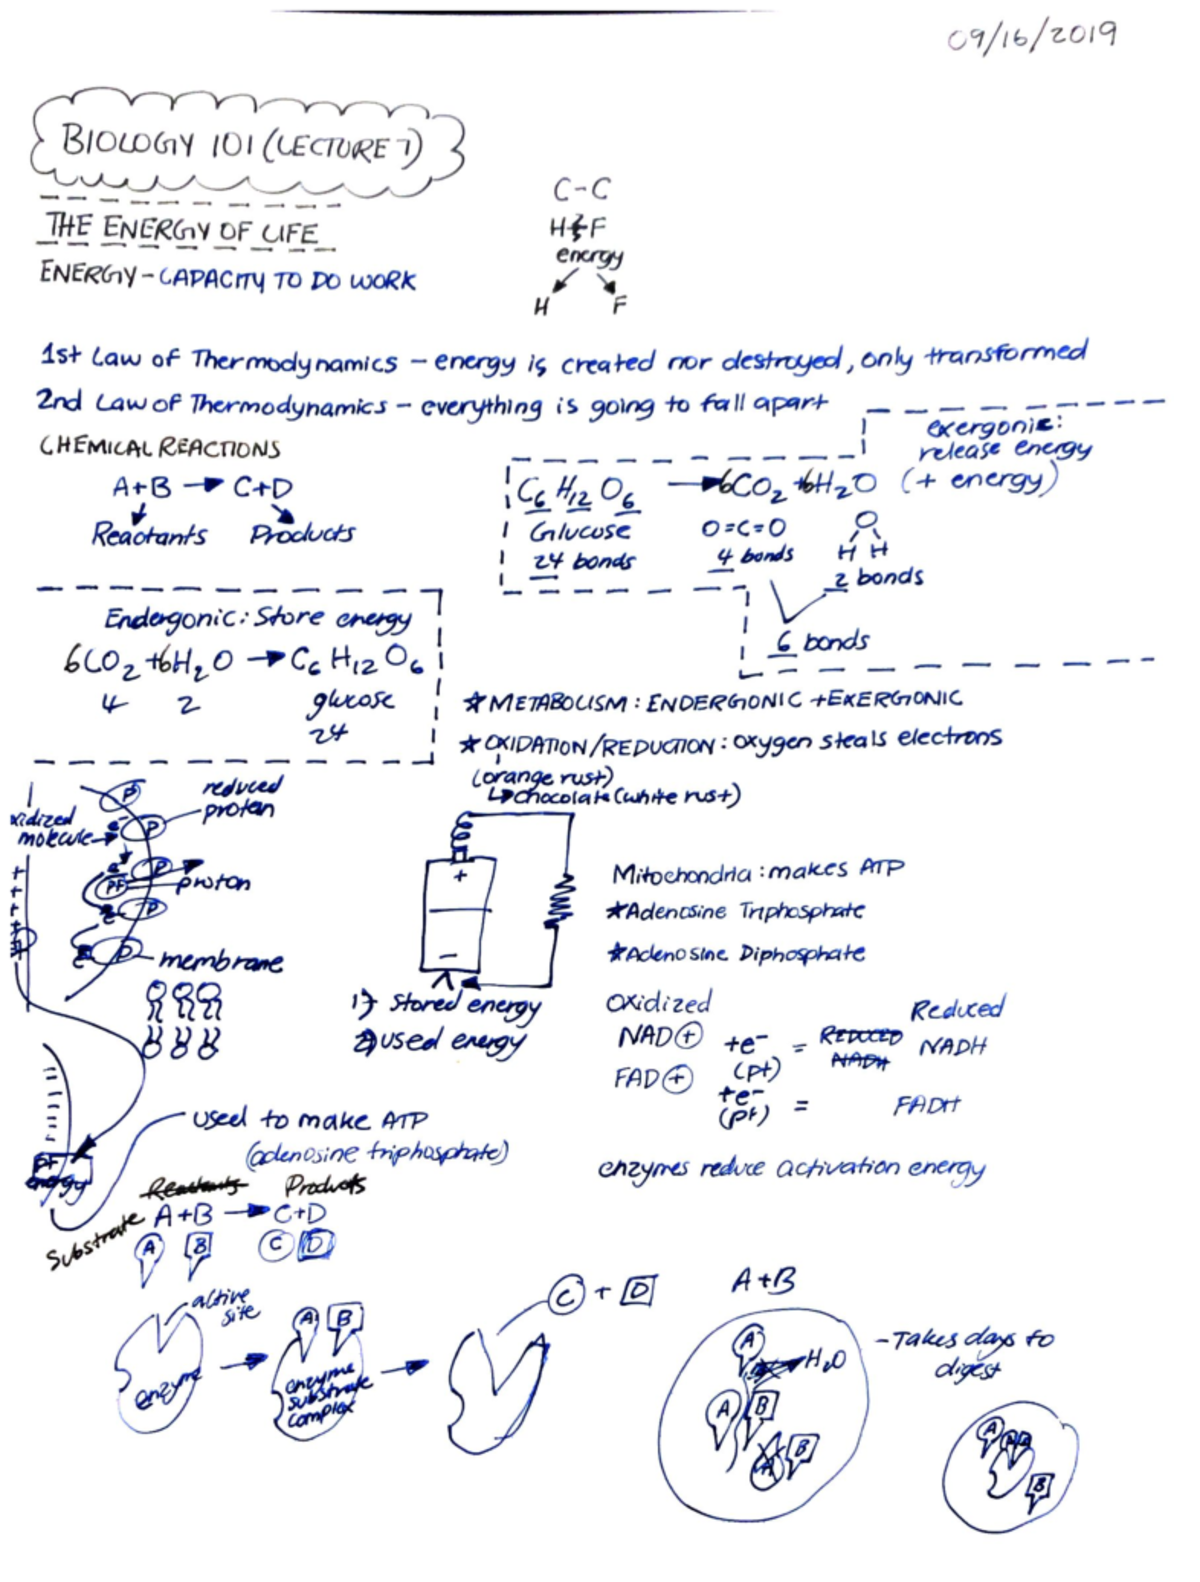 09/16/2019
BIOLOGY 101 (LECTURE 7)
THE ENERGY OF LIFE
ENERGY - CAPACITY TO DO WORK
C-C
H F
energy
H F
1st Law of Thermodynamics - energy is created nor destroyed, only transformed
2nd Law of Thermodynamics - everything is going to fall apart
CHEMICAL REACTIONS
A+B → C+D
Reactants Products
exergonic:
release energy
C6 H12 O6 → 6CO2 + 6H2O (+ energy)
Glucose
24 bonds
O=C=O
4 bonds
O
H H
2 bonds
6 bonds
Endergonic: Store energy
6CO2 + 6H2O → C6 H12 O6
4 2 glucose
24
☆ METABOLISM: ENDERGONIC + EXERGONIC
☆ OXIDATION/REDUCTION: oxygen steals electrons
(orange rust)
↳ chocolate (white rust)
reduced
protein
xidized
molecule
P
e-
P
P
PF
proton
P
P
membrane
+ + + + +
+
-
1) Stored energy
2) used energy
Mitochondria: makes ATP
★Adenosine Triphosphate
★Adenosine Diphosphate
Oxidized Reduced
NAD+ +e- (pt) = REDUCED NADH NADH
FAD+ +e- (pt) = FADH
enzymes reduce activation energy
used to make ATP
(adenosine triphosphate)
energy
Reactants Products
Substrate A+B → C+D
A B C D
active
site
enzyme
A B
enzyme
substrate
complex
C + D
A+B
A
H2O
A B
A B
- Takes days to
digest
A
B